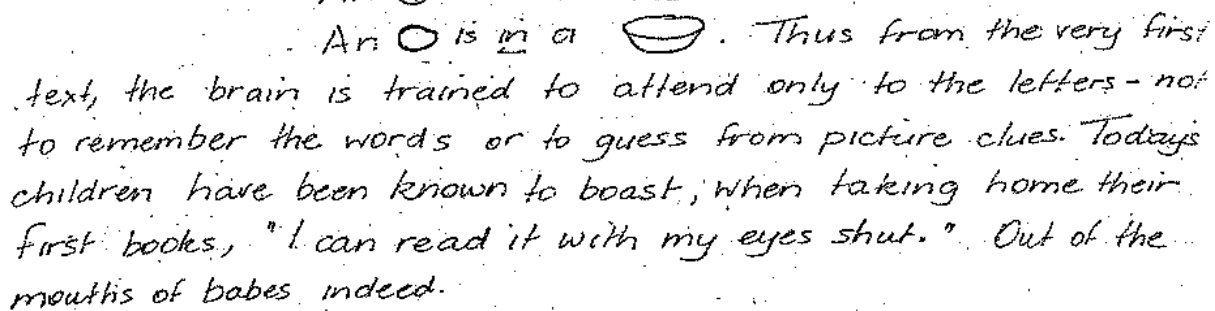 An is in a . Thus from the very first
text, the brain is trained to attend only to the letters - not
to remember the words or to guess from picture clues. Today's
children have been known to boast, when taking home their
first books, "I can read it with my eyes shut." Out of the
mouths of babes indeed.